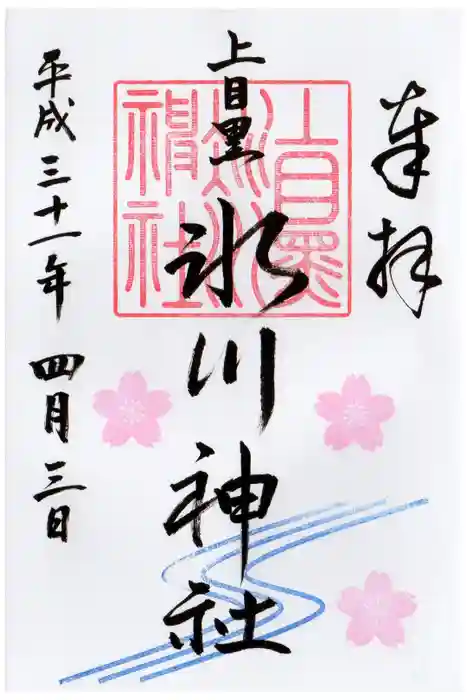 奉拝
上目黒
氷川神社
平成三十一年 四月三日
上目黒氷川神社